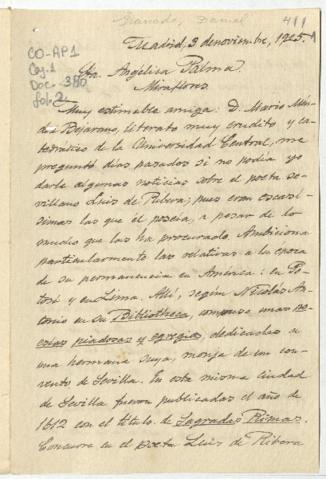 Granada, Daniel
411
Madrid, 3 de noviembre, 1925.
CO-AP1
Caj. 1
Doc. 380
fol. 2
Sra. Angélica Palma.
Miraflores
Muy estimable amiga: D. Mario Mén-
dez Bejarano, literato muy erudito y ca-
tedrático de la Universidad Central, me
preguntó días pasados si no podía yo
darle algunas noticias sobre el poeta se-
villano Luis de Ribera; pues eran escasí-
simas las que él poseía, a pesar de lo
mucho que las ha procurado. Ambiciona
particularmente las relativas a la época
de su permanencia en América: en Po-
tosí y en Lima. Allí, según Nicolás An-
tonio en su Bibliotheca, compuso unas po-
esías piadosas y egregias, dedicadas a
una hermana suya, monja de un con-
vento de Sevilla. En esta misma ciudad
de Sevilla fueron publicadas el año de
1612 con el título de Sagradas Rimas.
Concurre en el poeta Luis de Ribera